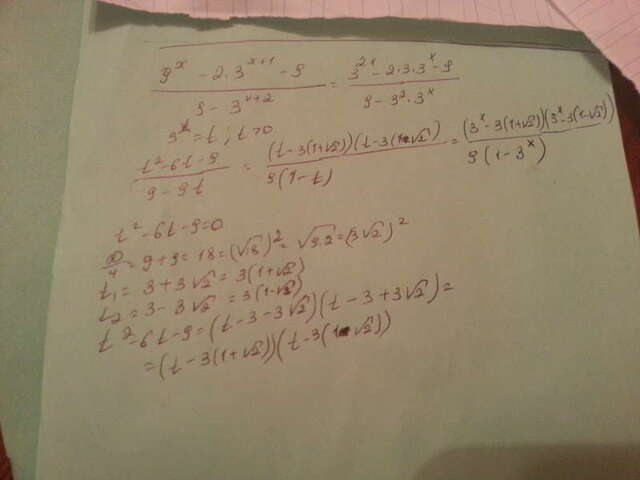 (9^x - 2·3^(x+1) - 9)/(9 - 3^(x+2)) = (3^(2x) - 2·3·3^x - 9)/(9 - 3^2·3^x)
3^x = t ; t>0
(t^2 - 6t - 9)/(9 - 9t) = ((t - 3(1+√2))(t - 3(1-√2)))/(9(1 - t)) = ((3^x - 3(1+√2))(3^x - 3(1-√2)))/(9(1 - 3^x))
t^2 - 6t - 9 = 0
D/4 = 9 + 9 = 18 = (√18)^2 = √9.2 = (3√2)^2
t_1 = 3 + 3√2 = 3(1+√2)
t_2 = 3 - 3√2 = 3(1-√2)
t^2 - 6t - 9 = (t - 3 - 3√2)(t - 3 + 3√2) =
= (t - 3(1+√2))(t - 3(1-√2))